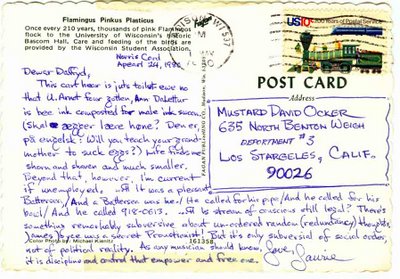 Flamingus Pinkus Plasticus
Once every 210 years, thousands of pink Flamingus
flock to the University of Wisconsin's historic
Bascom Hall. Care and feeding of the birds are
provided by the Wisconsin Student Association.
Norris Cord
Apearl 24, 1980
Dewer Daffyd,
This cart hear is juts tolet ewe no
that U. Amet four zotten, Ann DaLettur
is bee ink composted for male ink suwn
(Skal ægger lære høne? Den er
på engelsk: Will you teach your grand-
mother to suck eggs?) Life finds me
shorn and shaven and much smaller.
Beyond that, however, I'm current
if unemployed, It was a pleasant
Batterseu/And a Batterseu was he/He called for his pipe/And he called for his
bowl/And he called 918-0613. Is stream of conscious still legal? There's
something remarkably subversive about un-ordered random (redundancy) thoughts.
James Joyce was a secret Prousticist! But it's only subversive of social order,
not of political reality. As any musician should know,
it is discipline and control that empower and free one.
Love,
US10¢ 200 Years of Postal Service
POST CARD
Mustard David Ocker
635 North Benton Weigh
Department #3
Los Stargeles, Calif.
90026
Color Photo by: Michael Kienitz
161358